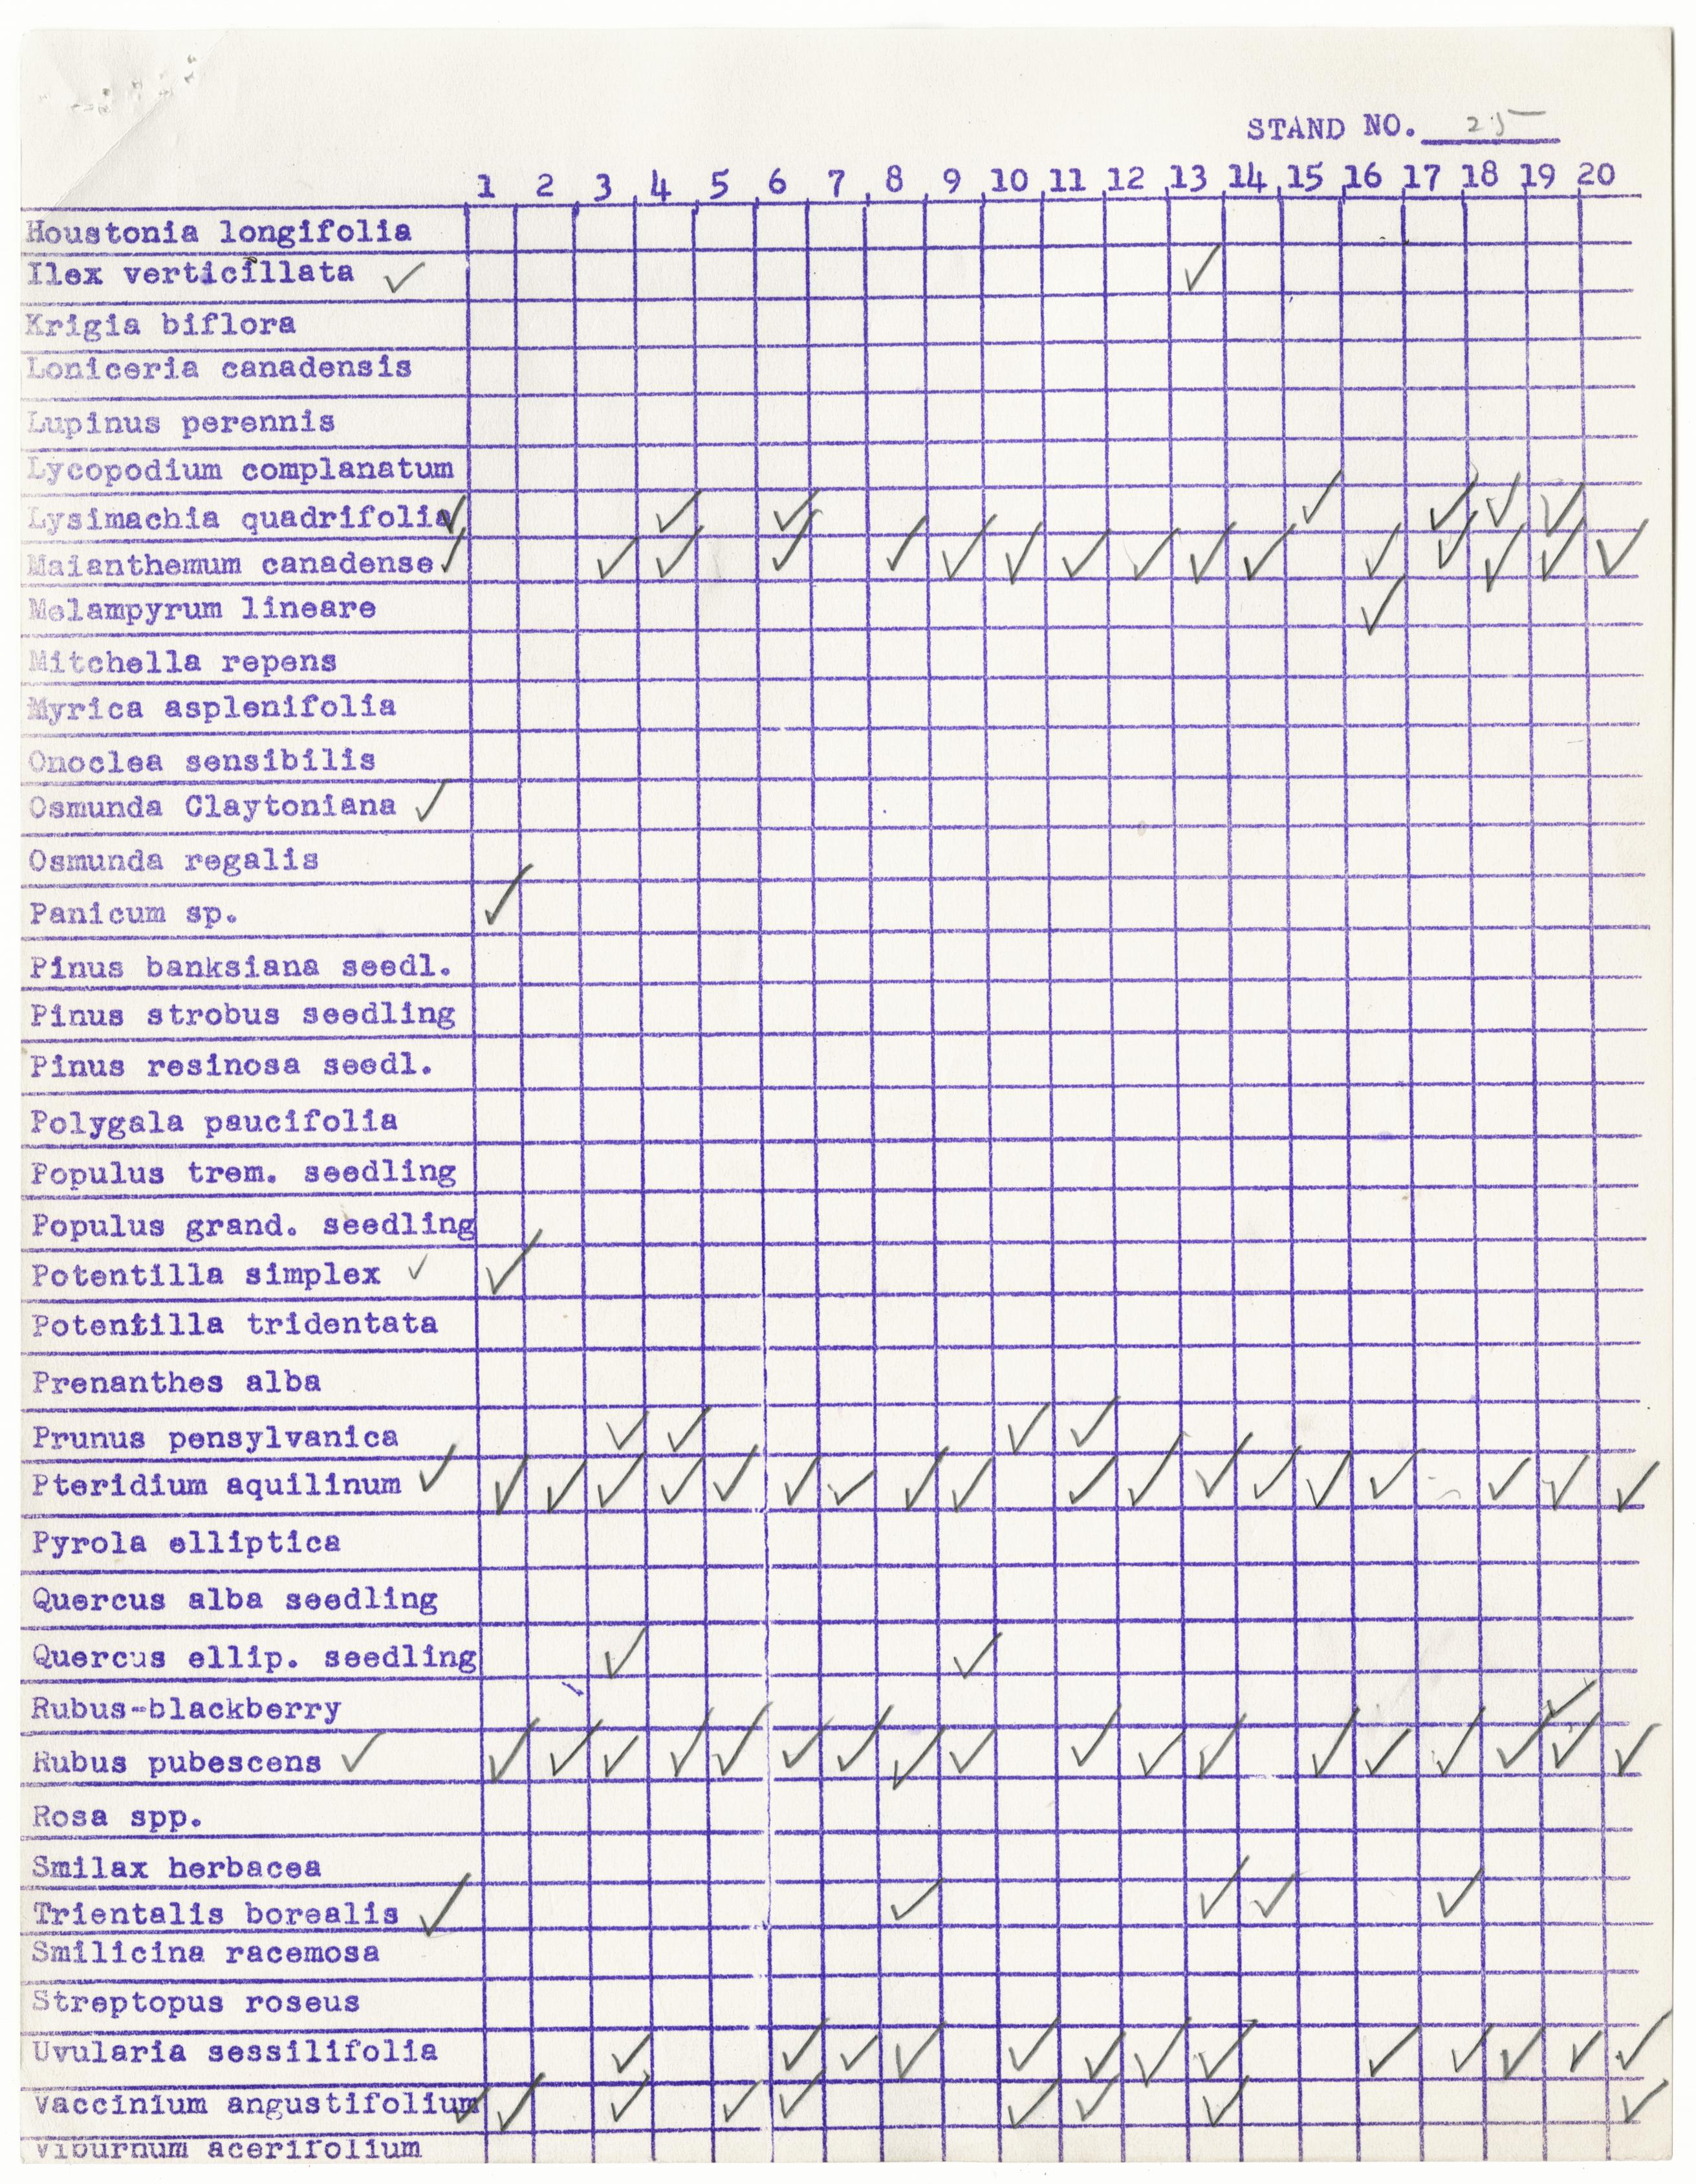 STAND NO. 25
1 2 3 4 5 6 7 8 9 10 11 12 13 14 15 16 17 18 19 20
Houstonia longifolia
Ilex verticillata ✓ ✓
Krigia biflora
Loniceria canadensis
Lupinus perennis
Lycopodium complanatum
Lysimachia quadrifolia ✓ ✓ ✓ ✓ ✓ ✓ ✓
Maianthemum canadense ✓ ✓ ✓ ✓ ✓ ✓ ✓ ✓ ✓ ✓ ✓ ✓ ✓ ✓ ✓ ✓
Melampyrum lineare ✓
Mitchella repens
Myrica asplenifolia
Onoclea sensibilis
Osmunda Claytoniana ✓
Osmunda regalis
Panicum sp. ✓
Pinus banksiana seedl.
Pinus strobus seedling
Pinus resinosa seedl.
Polygala paucifolia
Populus trem. seedling
Populus grand. seedling
Potentilla simplex ✓ ✓
Potentilla tridentata
Prenanthes alba
Prunus pensylvanica ✓ ✓ ✓ ✓
Pteridium aquilinum ✓ ✓ ✓ ✓ ✓ ✓ ✓ ✓ ✓ ✓ ✓ ✓ ✓ ✓ ✓ ✓ ✓ ✓ ✓
Pyrola elliptica
Quercus alba seedling
Quercus ellip. seedling ✓ ✓
Rubus-blackberry ✓
Rubus pubescens ✓ ✓ ✓ ✓ ✓ ✓ ✓ ✓ ✓ ✓ ✓ ✓ ✓ ✓ ✓ ✓ ✓ ✓ ✓
Rosa spp.
Smilax herbacea
Trientalis borealis ✓ ✓ ✓ ✓ ✓
Smilicina racemosa
Streptopus roseus
Uvularia sessilifolia ✓ ✓ ✓ ✓ ✓ ✓ ✓ ✓ ✓ ✓ ✓ ✓ ✓
Vaccinium angustifolium ✓ ✓ ✓ ✓ ✓ ✓ ✓ ✓ ✓
Viburnum acerifolium